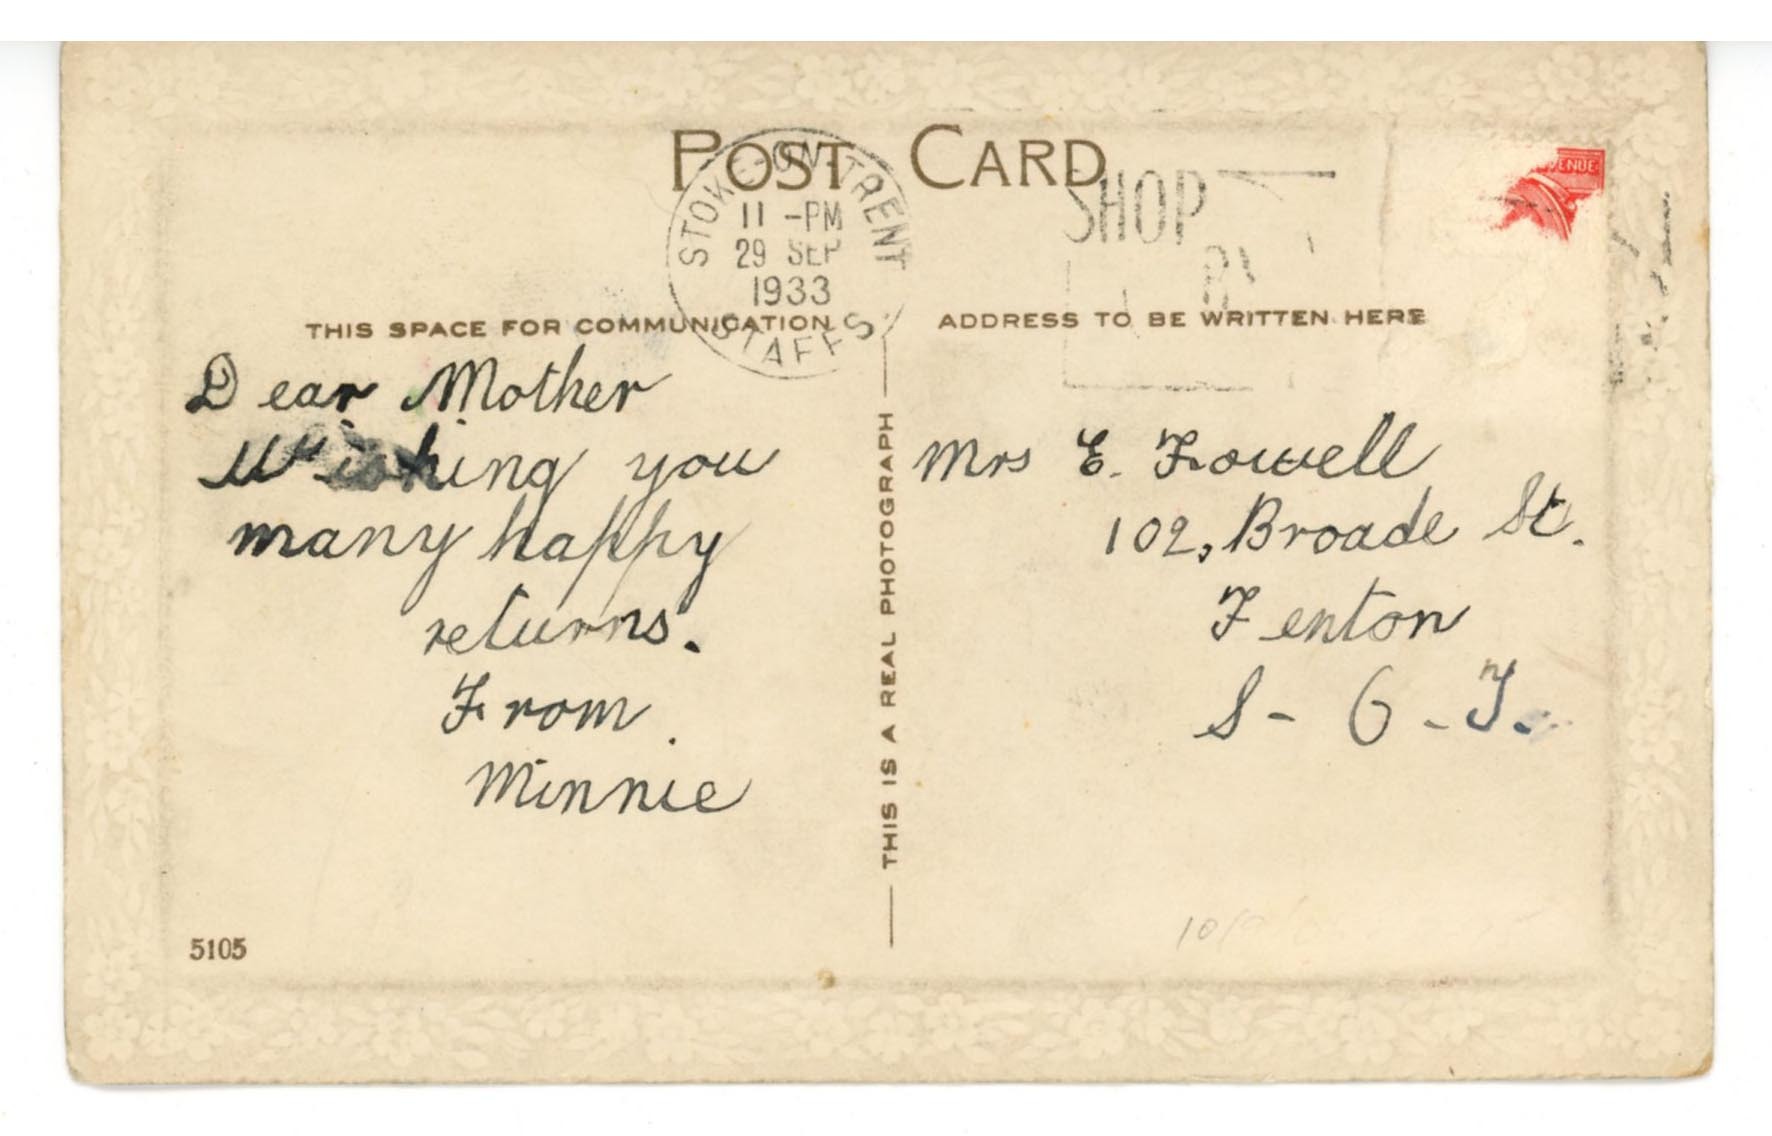 POST CARD
STOKE-ON-TRENT
11 -PM
29 SEP
1933
STAFFS.
SHOP
BY
VENUE
THIS SPACE FOR COMMUNICATION
ADDRESS TO BE WRITTEN HERE
Dear Mother
Wishing you
many happy
returns.
From
Minnie
THIS IS A REAL PHOTOGRAPH
Mrs E. Fowell
102, Broade St.
Fenton
S- O - T.
5105